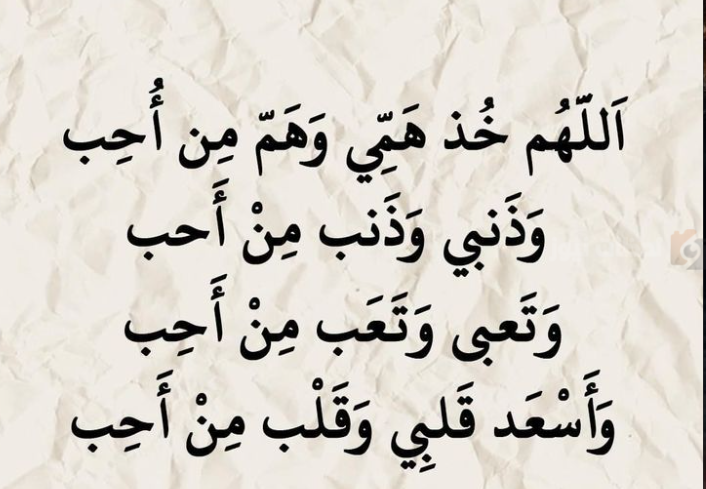 اَللّهُم خُذ هَمِّي وَهَمّ مِن أُحِب
وَذَنبي وَذَنب مِنْ أَحب
وَتَعبى وَتَعَب مِنْ أَحِب
وَأَسْعَد قَلبِي وَقَلْب مِنْ أَحِب